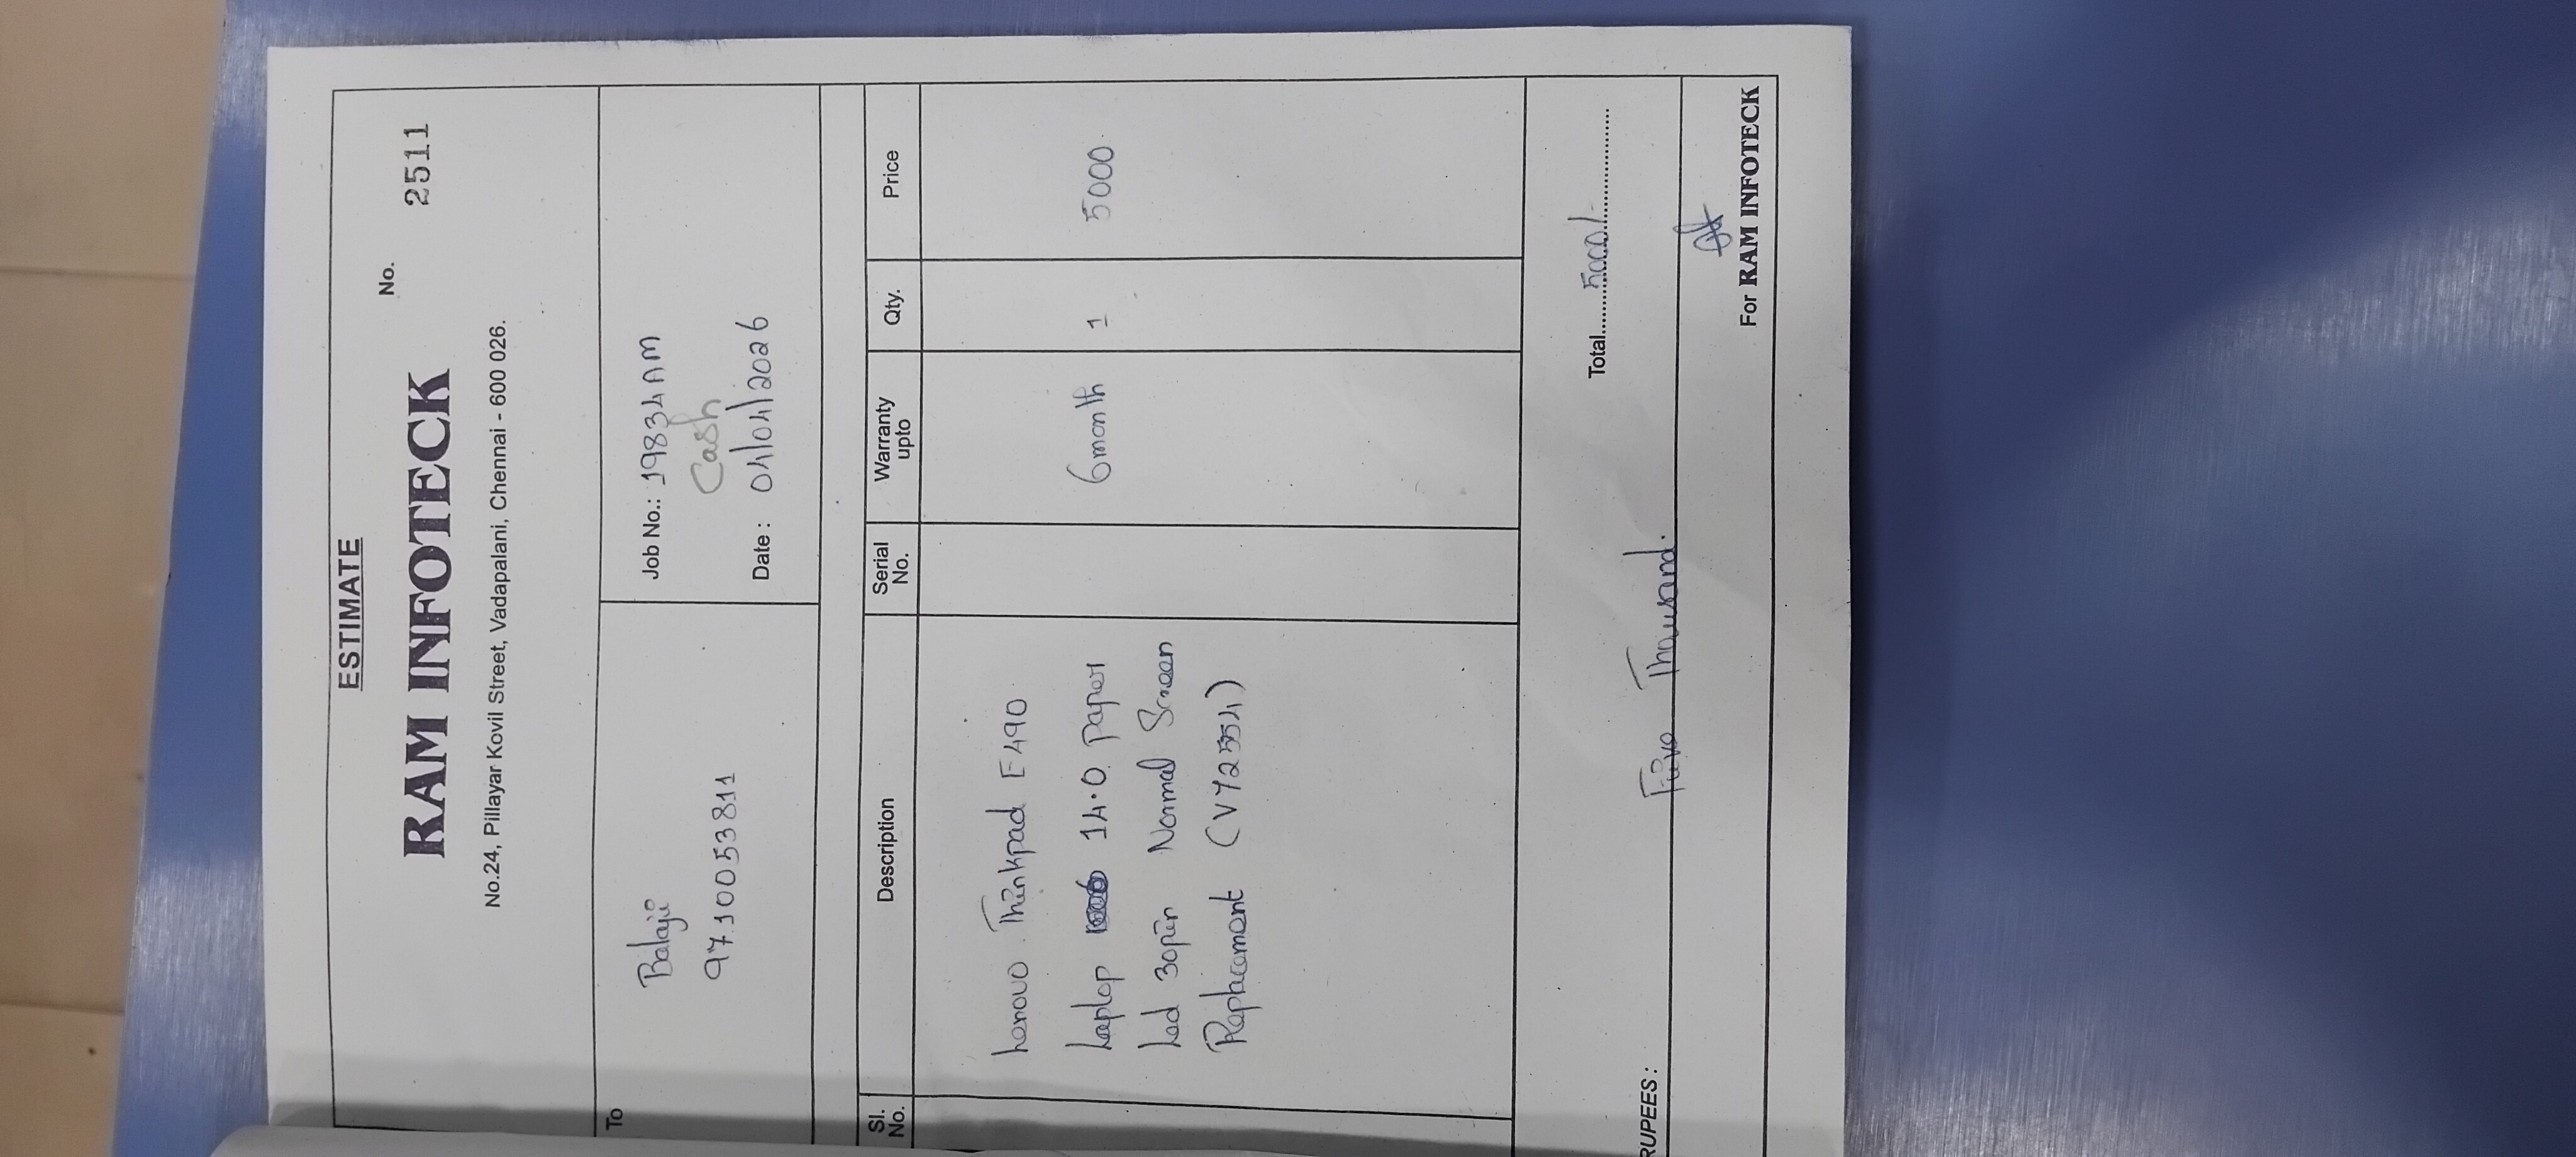 ESTIMATE
RAM INFOTECK
No. 2511
No.24, Pillayar Kovil Street, Vadapalani, Chennai - 600 026.
To
Balaji
9710053811
Job No.: 19834AM
Cash
Date : 04/04/2026
Sl. No. Description Serial No. Warranty upto Qty. Price
Lenovo Thinkpad E490
Laptop 14.0 Paper 6month 1 5000
Led 30pin Normal Screen
Replacement (VY2554)
Total 5000/-
RUPEES : Five Thousand.
For RAM INFOTECK